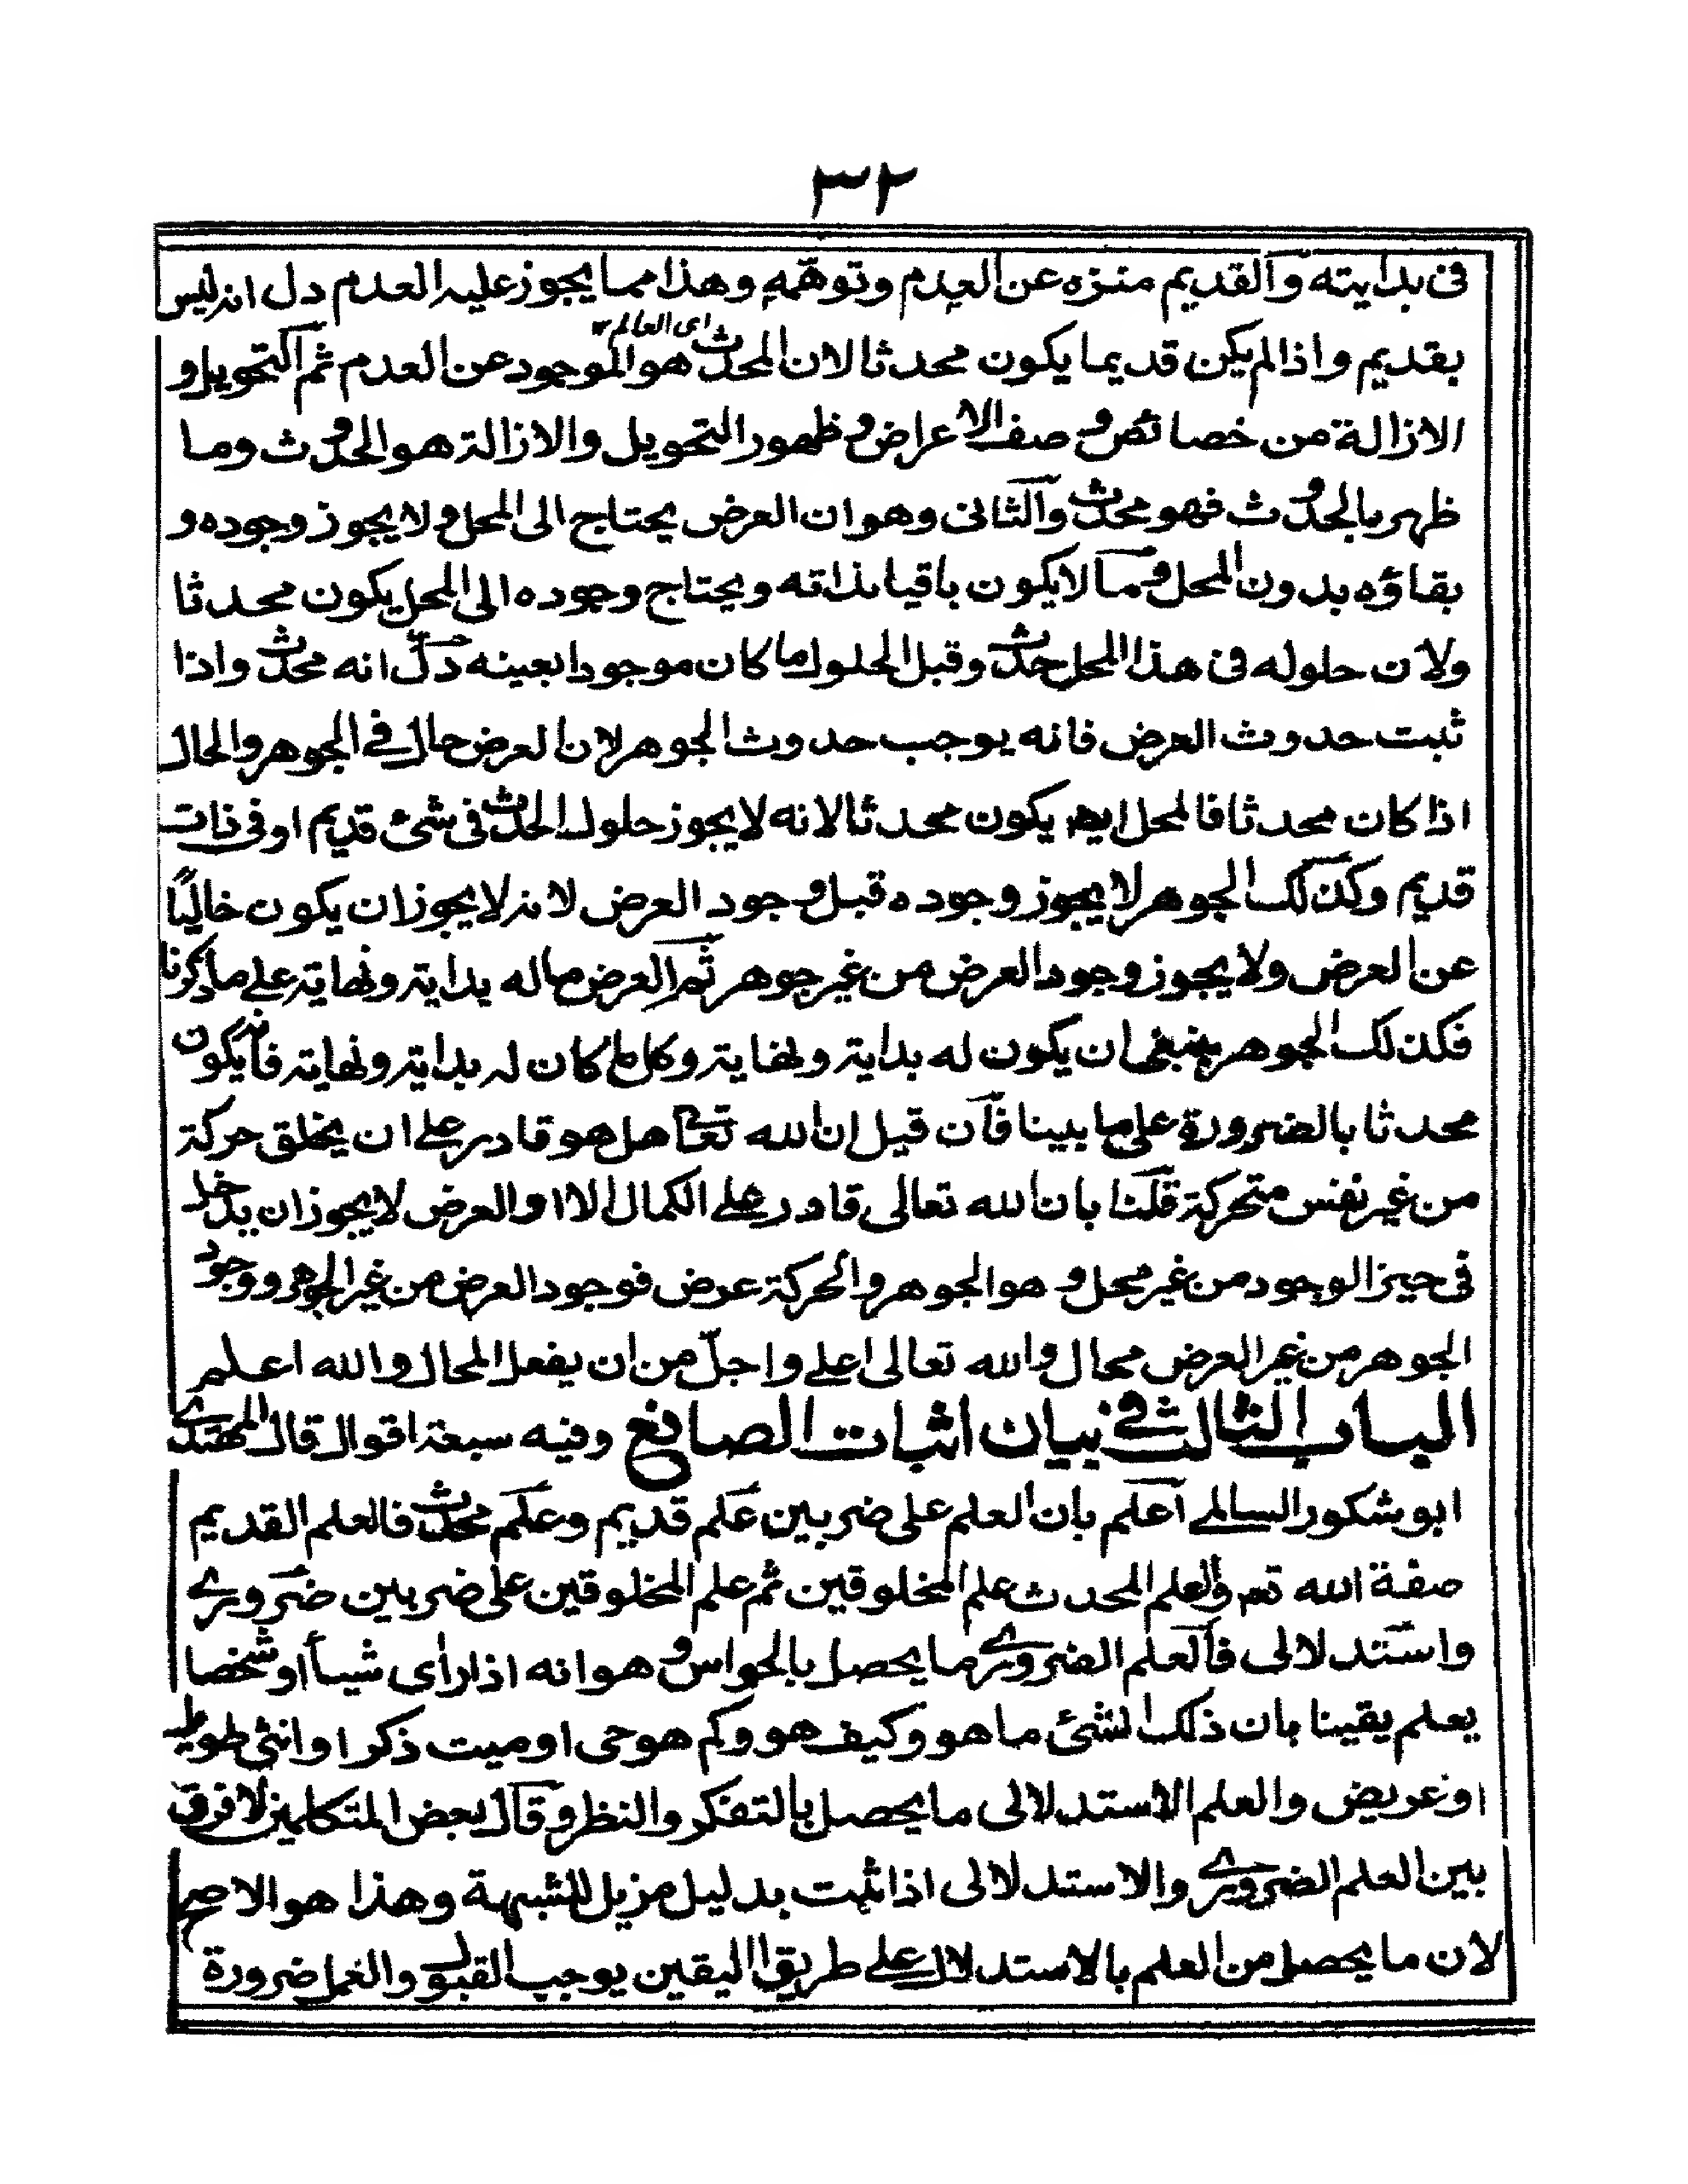 ٣٢
فى بدايته والقديم منزه عن العدم وتوهمه وهذا مما يجوز عليه العدم دل انه ليس
اى العالم ١٢
بقديم واذا لم يكن قديما يكون محدثا لان المحدث هو الموجود عن العدم ثم التحويل و
الازالة من خصائص وصف الاعراض وظهور التحويل والازالة هو الحدوث وما
ظهر بالحدوث فهو محدث والثانى وهو ان العرض يحتاج الى المحل ولا يجوز وجوده و
بقاؤه بدون المحل وما لا يكون باقيا بذاته ويحتاج وجوده الى المحل يكون محدثا
ولان حلوله فى هذا المحل حدث وقبل الحلول ما كان موجودا بعينه دلّ انه محدث واذا
ثبت حدوث العرض فانه يوجب حدوث الجوهر لان العرض حال فے الجوهر والحال
اذا كان محدثا فالمحل ايضا يكون محدثا لانه لا يجوز حلول الحدث فى شئ قديم او فى ذات
قديم وكذلك الجوهر لا يجوز وجوده قبل وجود العرض لانه لا يجوز ان يكون خاليًا
عن العرض ولا يجوز وجود العرض من غير جوهر ثم العرض ماله بداية ونهاية علے ما ذكرنا
فكذلك الجوهر ينبغى ان يكون له بداية ونهاية وكل ما كان له بداية ونهاية فانه يكون
محدثا بالضرورة على ما بينا فان قيل ان الله تعالے هل هو قادر علے ان يخلق حركة
من غير نفس متحركة قلنا بان الله تعالى قادر علے الكمال الا ان العرض لا يجوز ان يدخل
فى حيز الوجود من غير محل وهو الجوهر والحركة عرض فوجود العرض من غير الجوهر ووجود
الجوهر من غير العرض محال والله تعالى اعلے واجلّ من ان يفعل المحال والله اعلم
الباب الثالث فے بيان اثبات الصانع وفيه سبعة اقوال قال المهتدے
ابو شكور السالمے اعلم بان العلم على ضربين علم قديم وعلم محدث فالعلم القديم
صفة الله تعم والعلم المحدث علم المخلوقين ثم علم المخلوقين على ضربين ضرورے
واستدلالى فالعلم الضرورے ما يحصل بالحواس وهو انه اذا رأى شيأ او شخصا
يعلم يقينا بان ذلك الشئ ما هو وكيف هو وكم هو حى او ميت ذكرا وانثى طويل
او عريض والعلم الاستدلالى ما يحصل بالتفكر والنظر وقال بعض المتكلمين لا فرق
بين العلم الضرورے والاستدلالى اذا ثبت بدليل مزيل للشبهة وهذا هو الاصح
لان ما يحصل من العلم بالاستدلال علے طريق اليقين يوجب القبول والعمل ضرورة